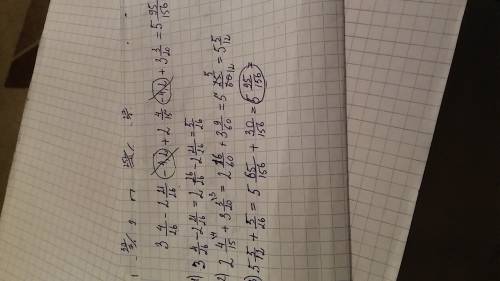 3 4/26 - 2 11/26 + 2 4/15 + 3 3/20 = 5 95/156
1) 3 4/26 - 2 11/26 = 2 16/26 - 2 11/26 = 5/26
2) 2 4/15 + 3 3/20 = 2 16/60 + 3 9/60 = 5 25/60 = 5 5/12
3) 5 5/12 + 5/26 = 5 65/156 + 30/156 = 5 95/156 =